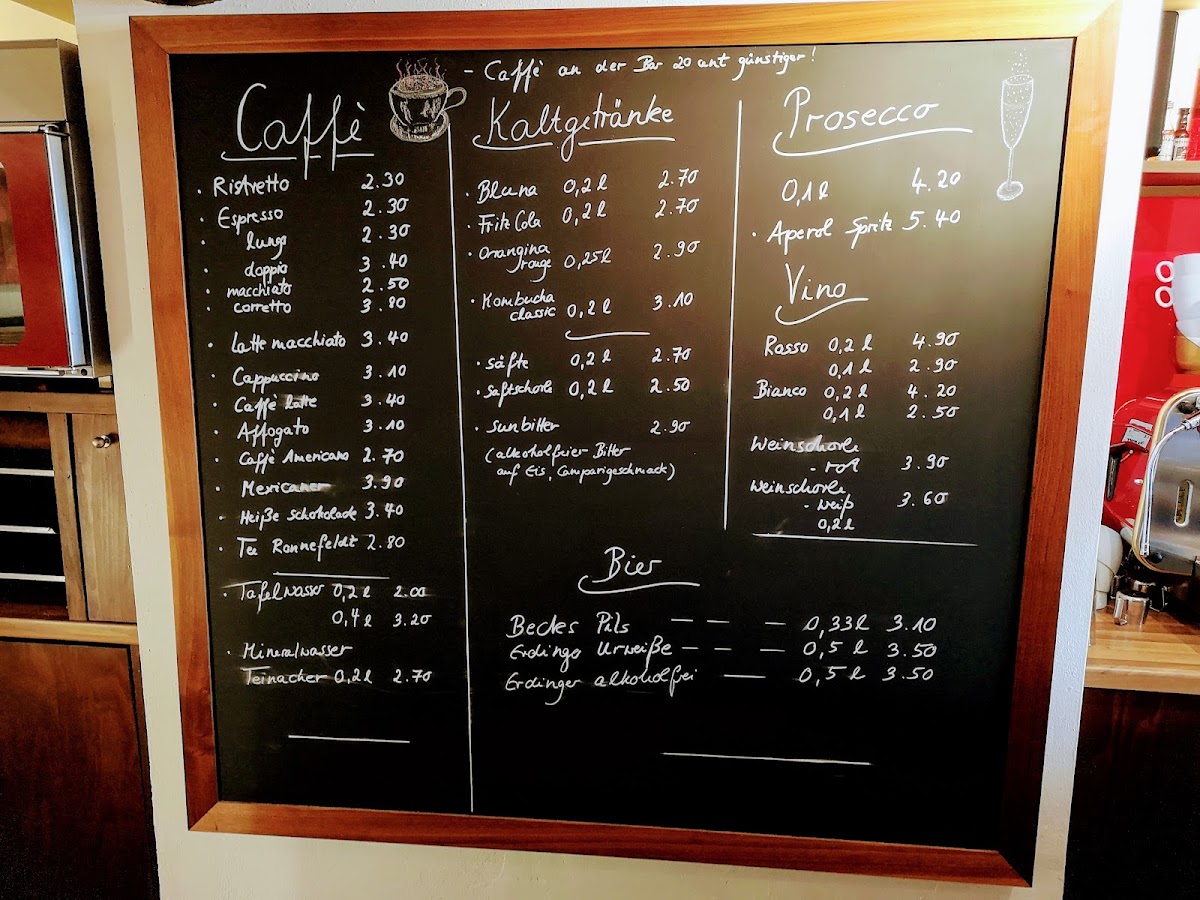 - Caffè an der Bar 20 cent günstiger!
Caffè
· Ristretto 2.30
· Espresso 2.30
· lungo 2.30
· doppio 3.40
· macchiato 2.50
· corretto 3.80
· Latte macchiato 3.40
· Cappuccino 3.10
· Caffè latte 3.40
· Affogato 3.10
· Caffè Americano 2.70
· Mexicaner 3.90
· Heiße Schokolade 3.40
· Tee Ronnefeldt 2.80
· Tafelwasser 0,2 l 2.00
0,4 l 3.20
· Mineralwasser
Teinacher 0,2 l 2.70
Kaltgetränke
· Bluna 0,2 l 2.70
· Fritz Cola 0,2 l 2.70
· Orangina
rouge 0,25 l 2.90
· Kombucha
classic 0,2 l 3.10
· Säfte 0,2 l 2.70
· Saftschorle 0,2 l 2.50
· Sunbitter 2.90
(alkoholfreier Bitter
auf Eis, Camparigeschmack)
Prosecco
0,1 l 4.20
· Aperol Spritz 5.40
Vino
Rosso 0,2 l 4.90
0,1 l 2.90
Bianco 0,2 l 4.20
0,1 l 2.50
Weinschorle
- rot 3.90
Weinschorle
- weiß 3.60
0,2 l
Bier
Becks Pils — — — 0,33 l 3.10
Erdinger Urweiße — — — 0,5 l 3.50
Erdinger alkoholfrei — — 0,5 l 3.50